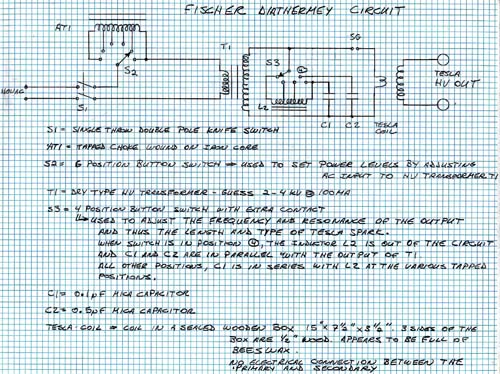 FISCHER DIATHERMEY CIRCUIT
AT1
S2
T1
S3
④
SG
TESLA
HV OUT
110VAC
S1
L2
C1 C2
TESLA
COIL
S1 = SINGLE THROW DOUBLE POLE KNIFE SWITCH
AT1 = TAPPED CHOKE WOUND ON IRON CORE
S2 = 6 POSITION BUTTON SWITCH → USED TO SET POWER LEVELS BY ADJUSTING
AC INPUT TO HV TRANSFORMER T1
T1 = DRY TYPE HV TRANSFORMER - GUESS 2-4 KV @ 100MA
S3 = 4 POSITION BUTTON SWITCH WITH EXTRA CONTACT
↳ USED TO ADJUST THE FREQUENCY AND RESONANCE OF THE OUTPUT
AND THUS THE LENGTH AND TYPE OF TESLA SPARK.
WHEN SWITCH IS IN POSITION ④, THE INDUCTOR L2 IS OUT OF THE CIRCUIT
AND C1 AND C2 ARE IN PARALLEL WITH THE OUTPUT OF T1
ALL OTHER POSITIONS, C1 IS IN SERIES WITH L2 AT THE VARIOUS TAPPED
POSITIONS.
C1 = 0.1µF MICA CAPACITOR
C2 = 0.5µF MICA CAPACITOR
TESLA COIL = COIL IN A SEALED WOODEN BOX 15" x 7½" x 3½". 3 SIDES OF THE
BOX ARE ½" WOOD. APPEARS TO BE FULL OF
BEESWAX.
NO ELECTRICAL CONNECTION BETWEEN THE
PRIMARY AND SECONDARY